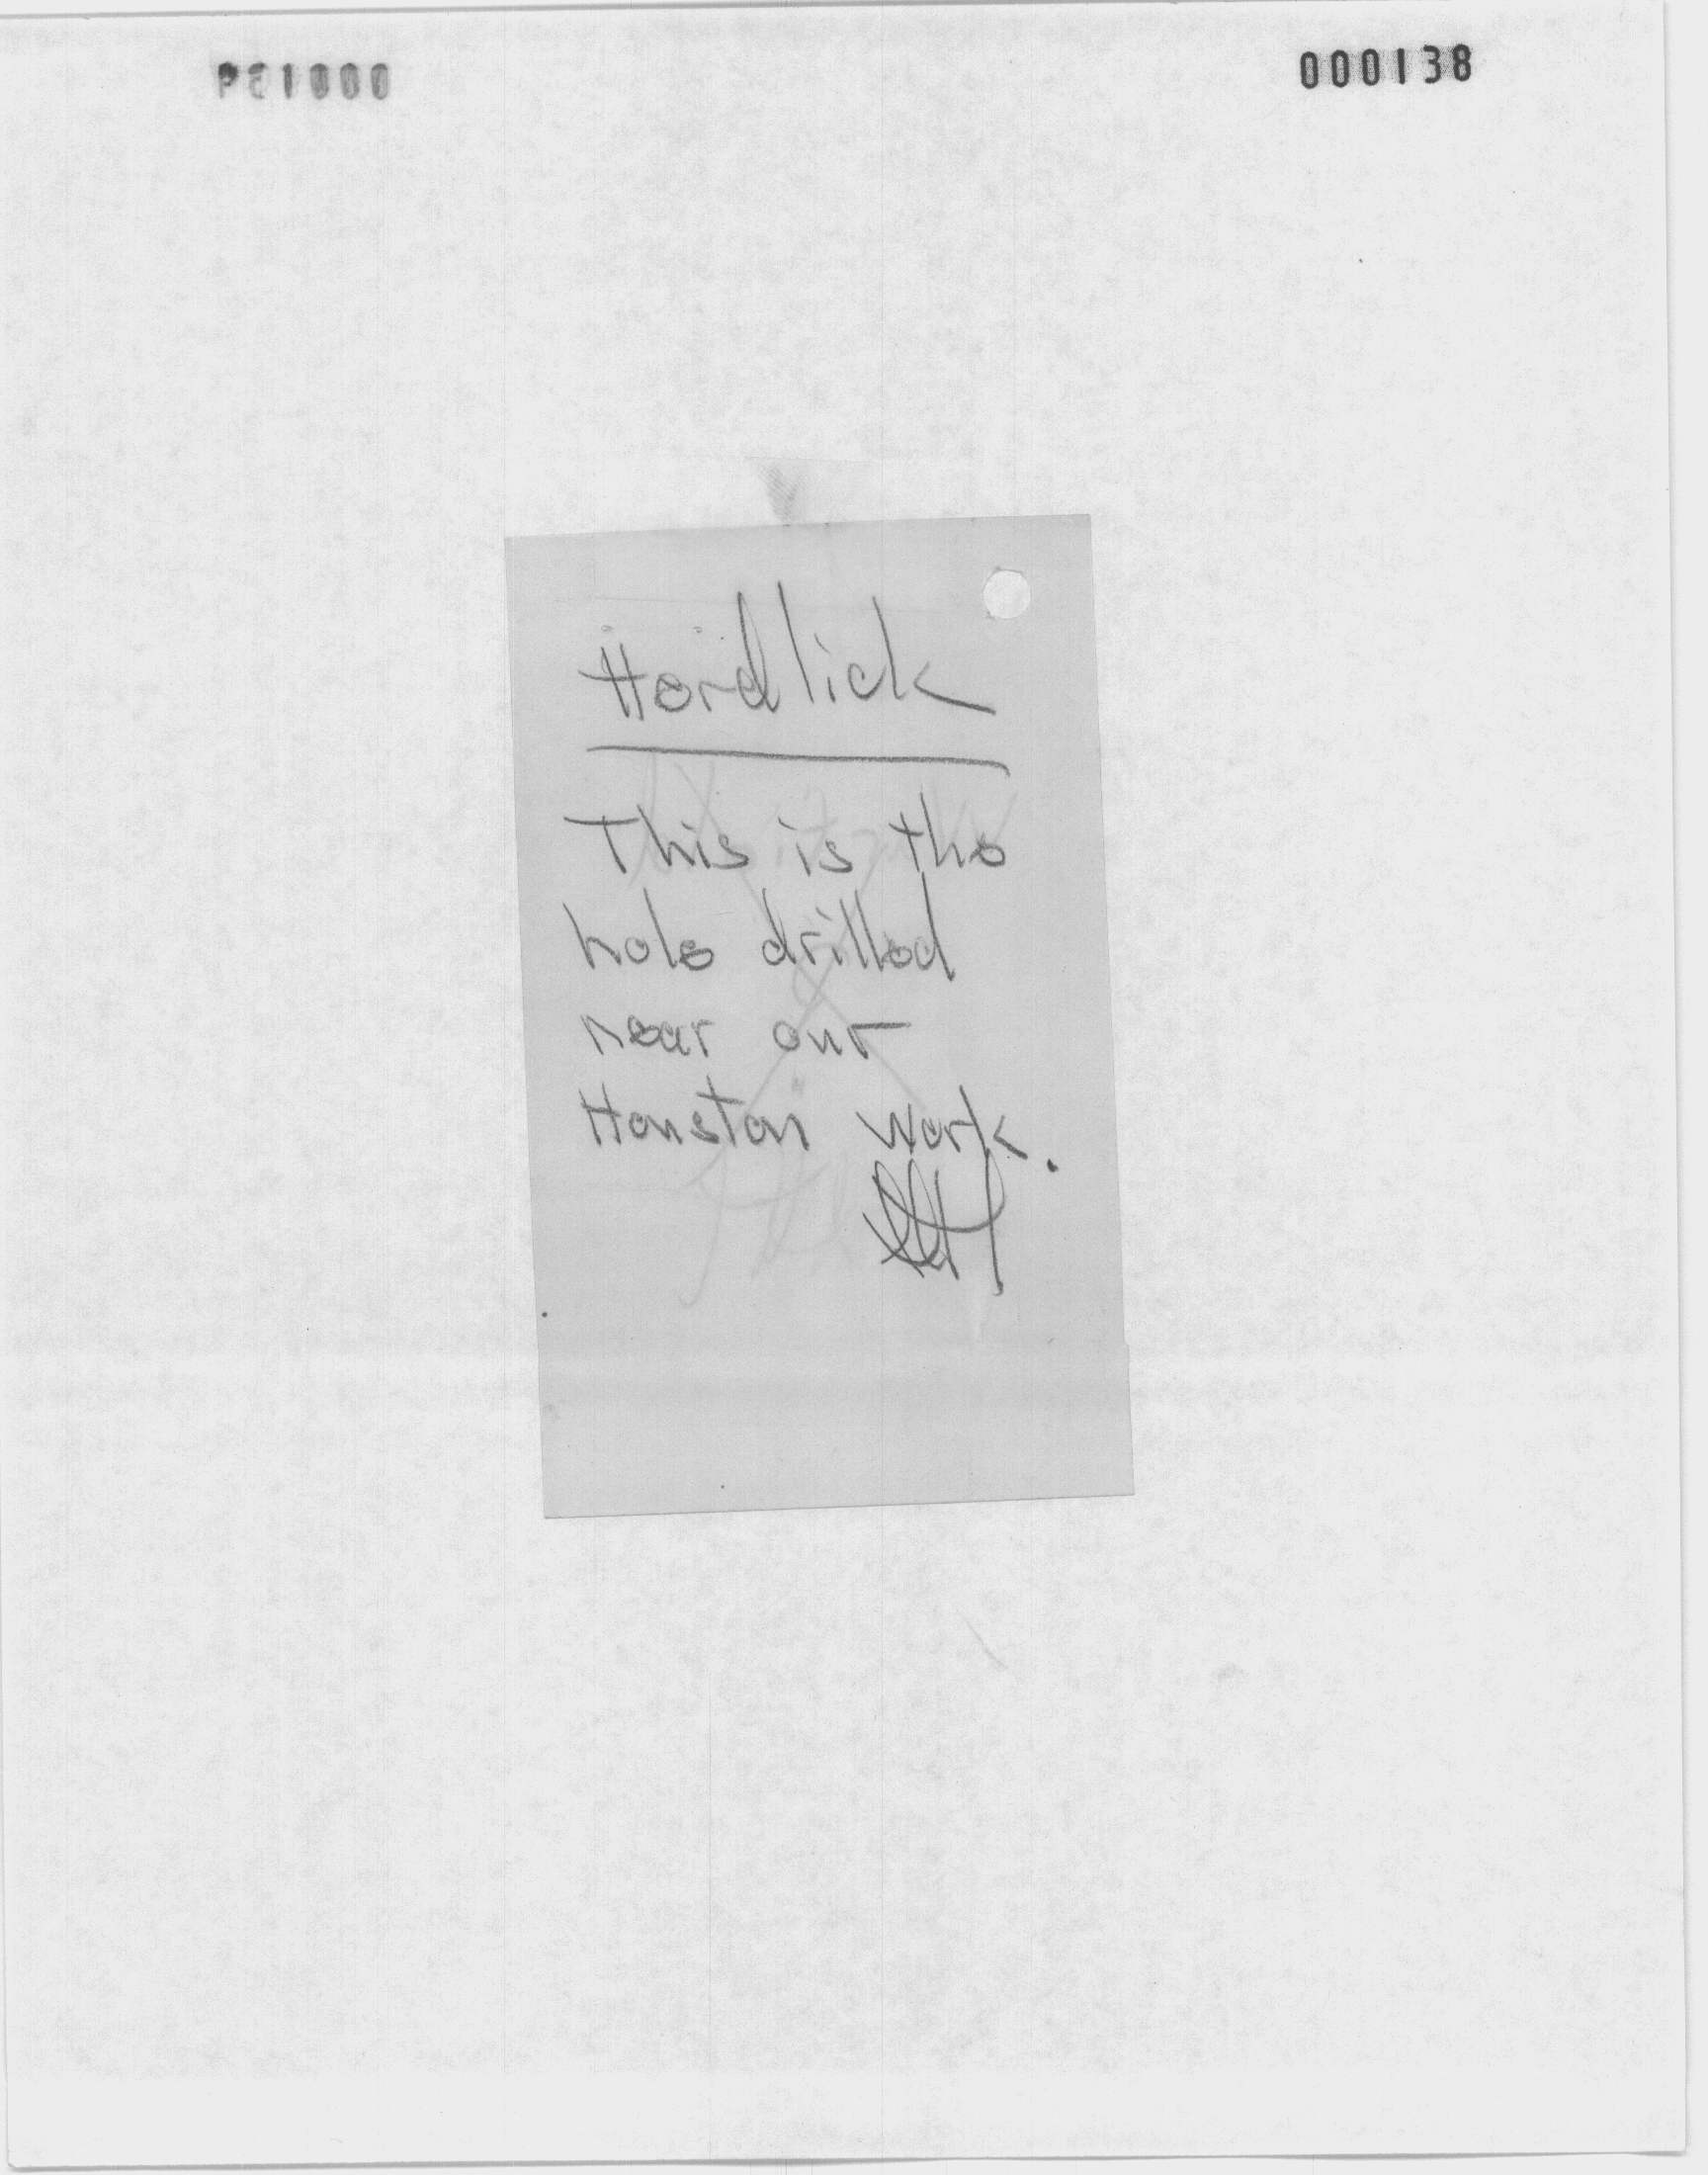 000138
Hordlick
This is the
hole drilled
near our
Houston Work.